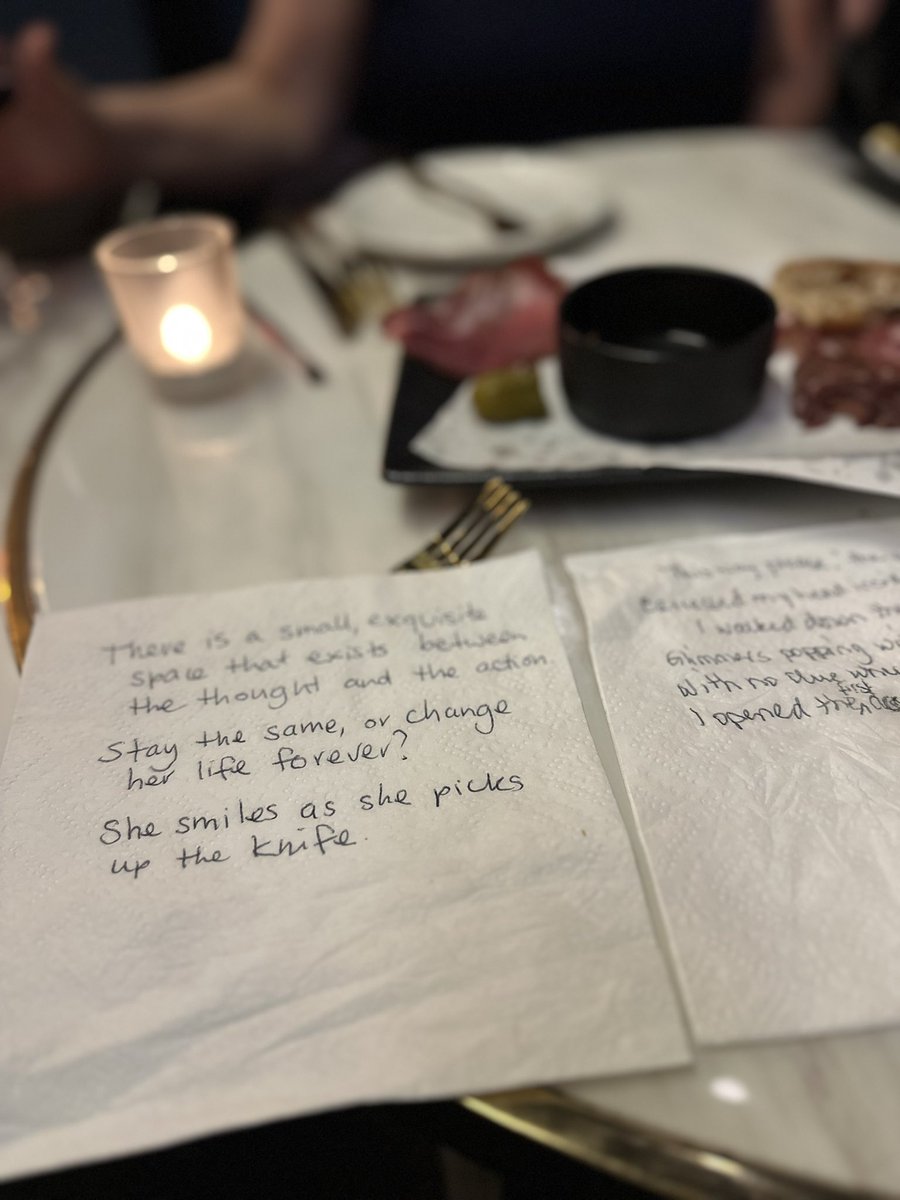 There is a small, exquisite
space that exists between
the thought and the action.
Stay the same, or change
her life forever?
She smiles as she picks
up the knife.
"This way please," the
my head
I walked down the
Glimmers popping
with no clue
first
I opened the